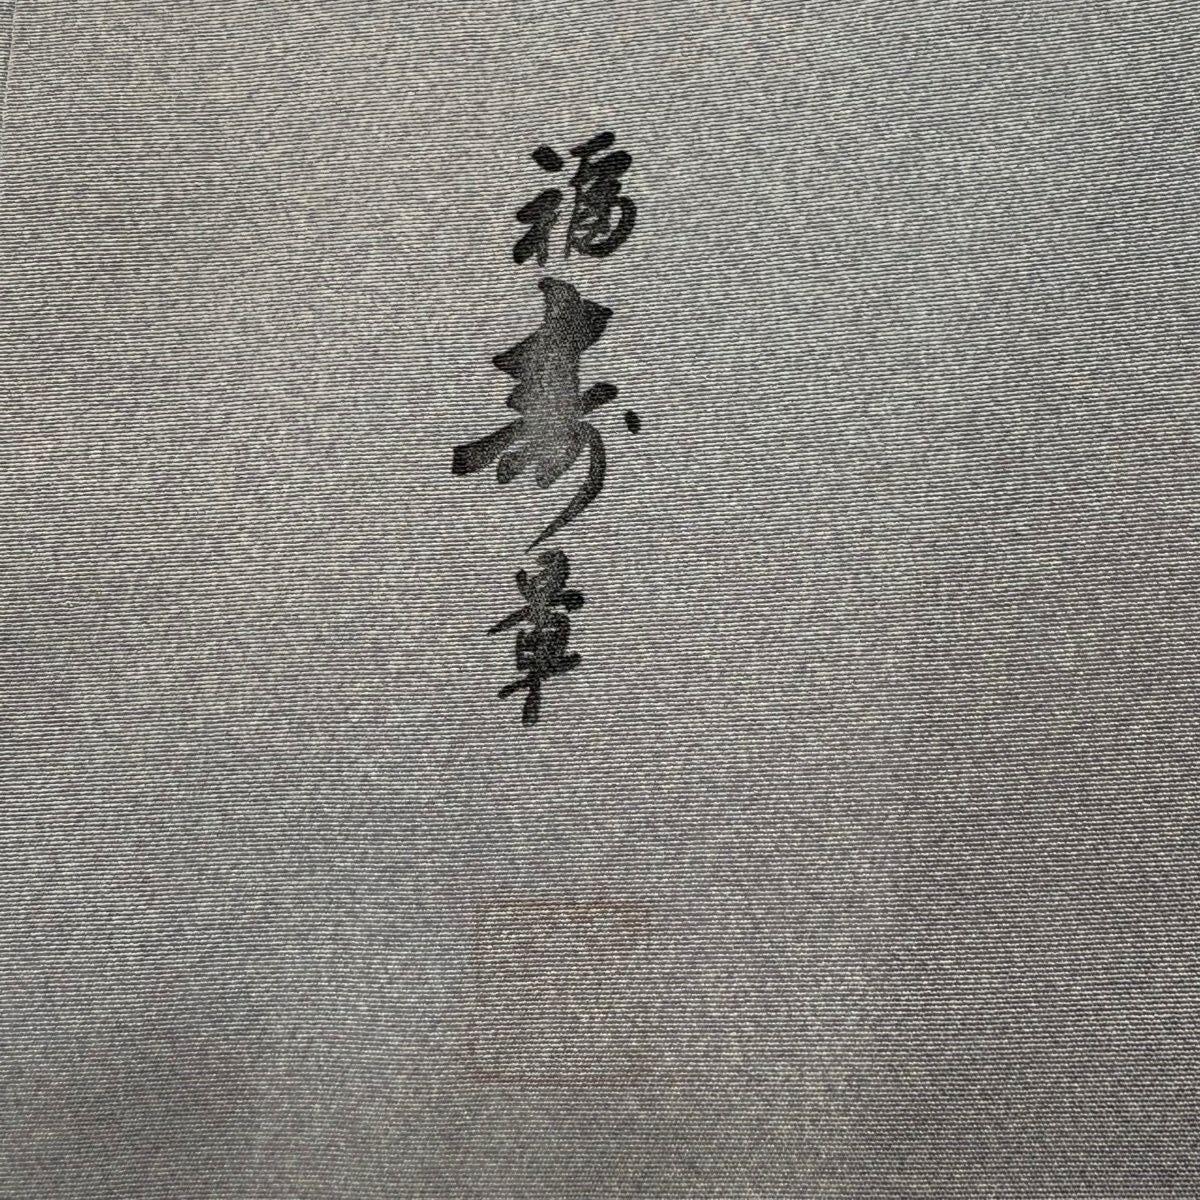 福寿草